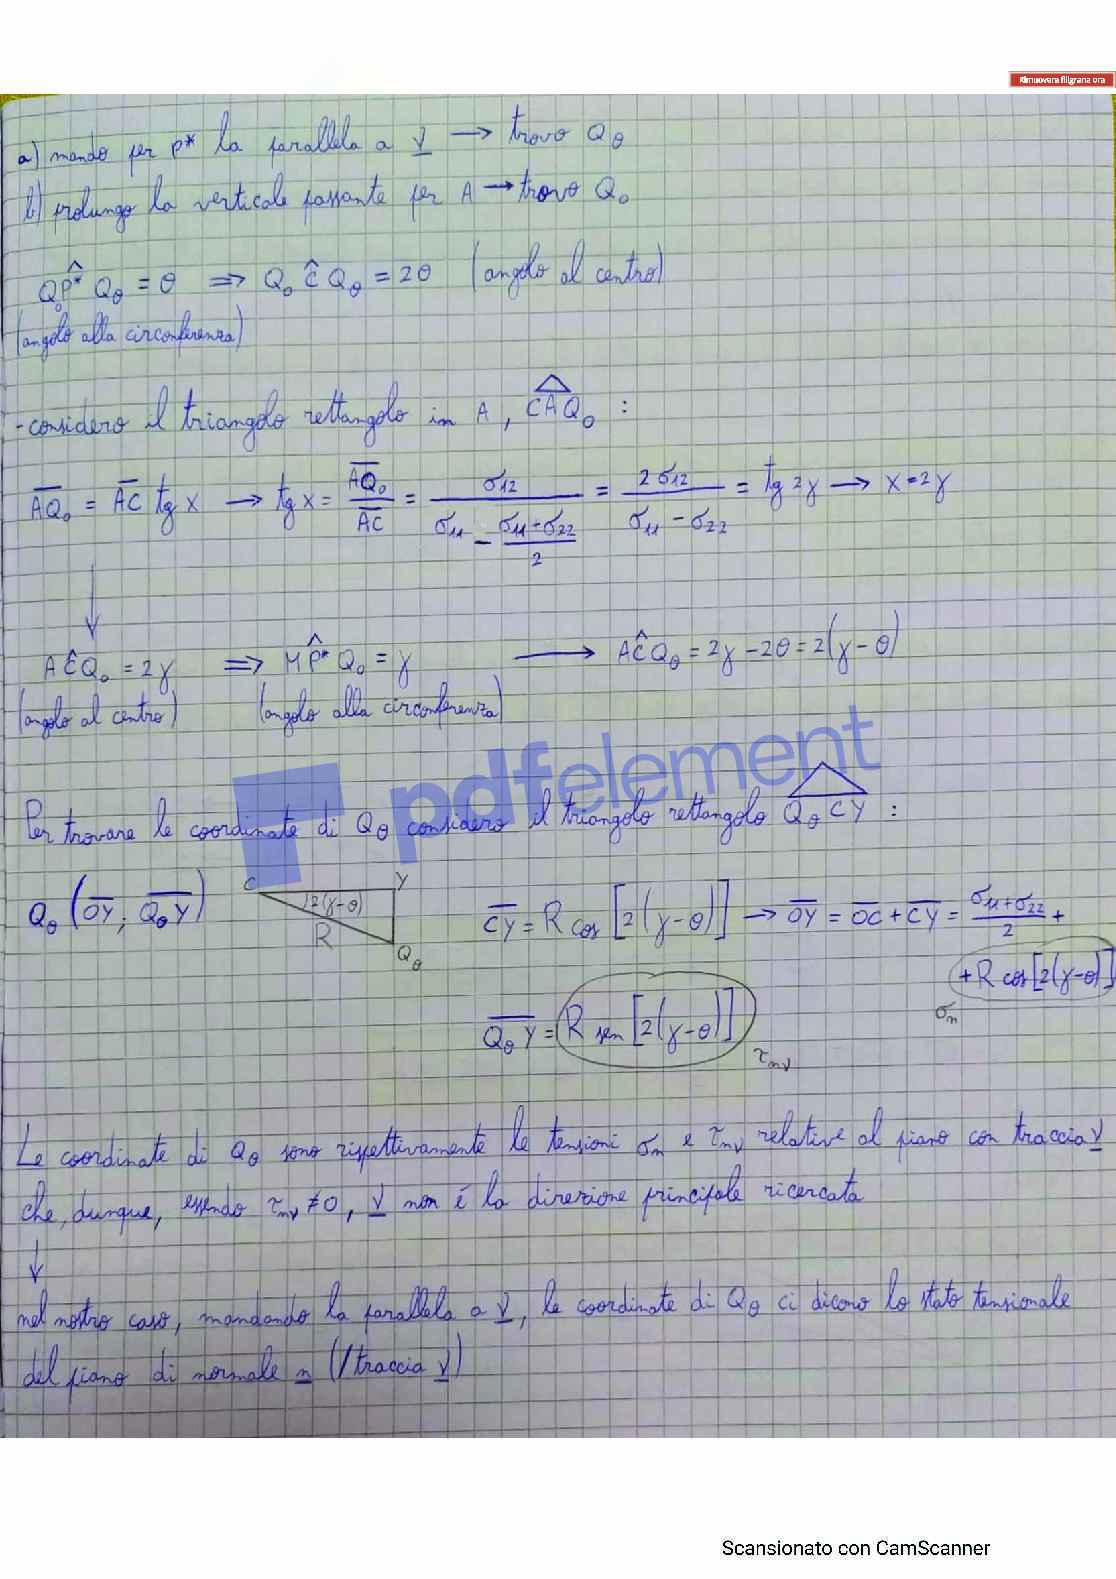 Rimuovere filigrana ora
a) mando per P* la parallela a v → trovo Qθ
b) prolungo la verticale passante per A → trovo Q₀
Q₀P̂*Qθ = θ ⇒ Q₀ĈQθ = 2θ (angolo al centro)
(angolo alla circonferenza)
- considero il triangolo rettangolo in A, CAQ₀ :
AQ₀ = AC tg x → tg x = AQ₀/AC = σ12/(σ11 - (σ11+σ22)/2) = 2σ12/(σ11 - σ22) = tg 2γ → x = 2γ
↓
AĈQ₀ = 2γ ⇒ MP̂*Q₀ = γ → AĈQθ = 2γ - 2θ = 2(γ - θ)
(angolo al centro) (angolo alla circonferenza)
pdfelement
Per trovare le coordinate di Qθ considero il triangolo rettangolo QθCY :
Qθ (OY ; QθY)
C Y 2(γ-θ) R Qθ
CY = R cos [2(γ-θ)] → OY = OC + CY = (σ11+σ22)/2 +
+ R cos [2(γ-θ)]
σn
QθY = R sen [2(γ-θ)]
τnv
Le coordinate di Qθ sono rispettivamente le tensioni σn e τnv relative al piano con traccia v
che, dunque, essendo τnv ≠ 0, v non é la direzione principale ricercata
↓
nel nostro caso, mandando la parallela a v, le coordinate di Qθ ci dicono lo stato tensionale
del piano di normale n (/traccia v)
Scansionato con CamScanner